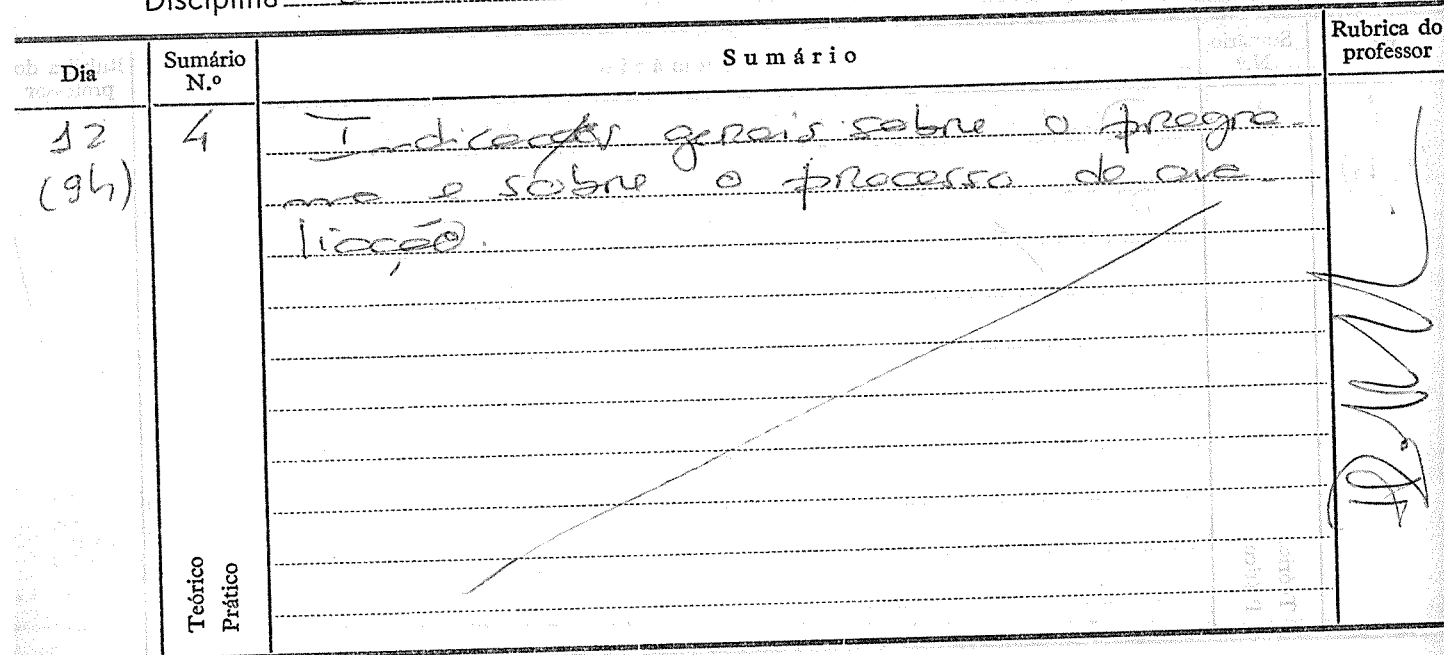 Disciplina
Dia
Sumário N.º
Sumário
Rubrica do professor
12
(9h)
4
Indicações gerais sobre o progra-
ma e sôbre o processo de ava-
liação.
Teórico
Prático